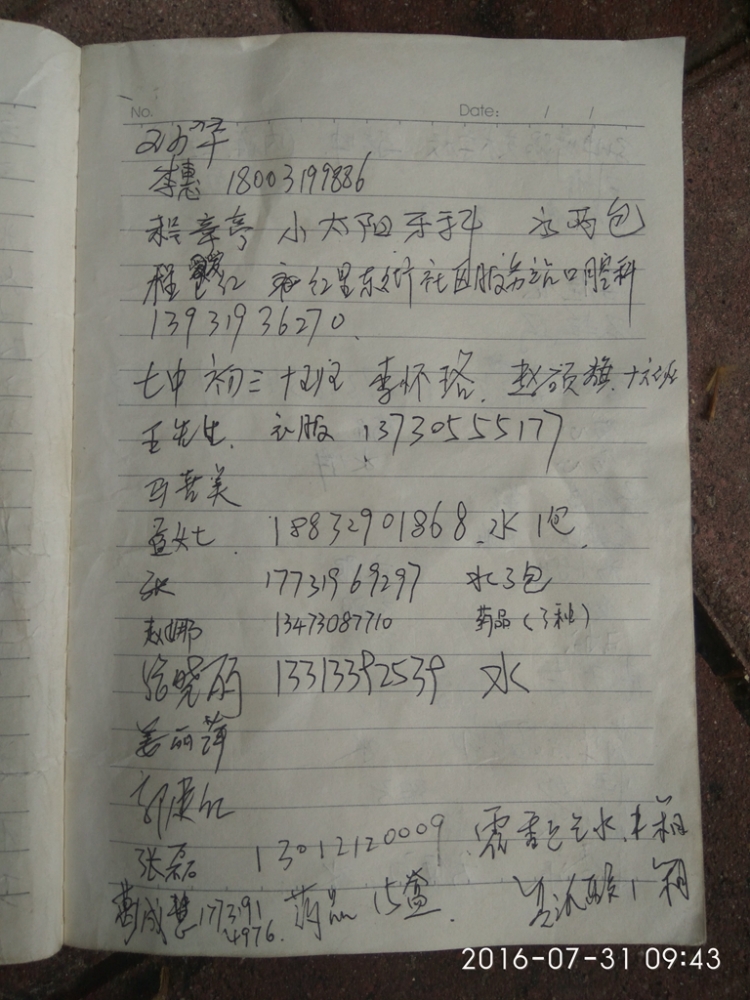 No. Date: / /
李惠 18003199886
程章亭 小太阳牙科 水两包
程 红 红星东街社区服务站口腔科
13931936270
七中 初三 十班 李怀珞. 赵颀旗.
王先生. 衣服 13730555177
马喜美
孟女士. 18832901868 水1包
张 17731969297 水3包
赵娜 13473087710 药品(3种)
徐晓丽 13313392539 水
姜丽萍
郭庚红
张磊 13012120009 霍香正气水. 箱
葛成慧 药品 15盒. 1箱
177391
4976.
2016-07-31 09:43